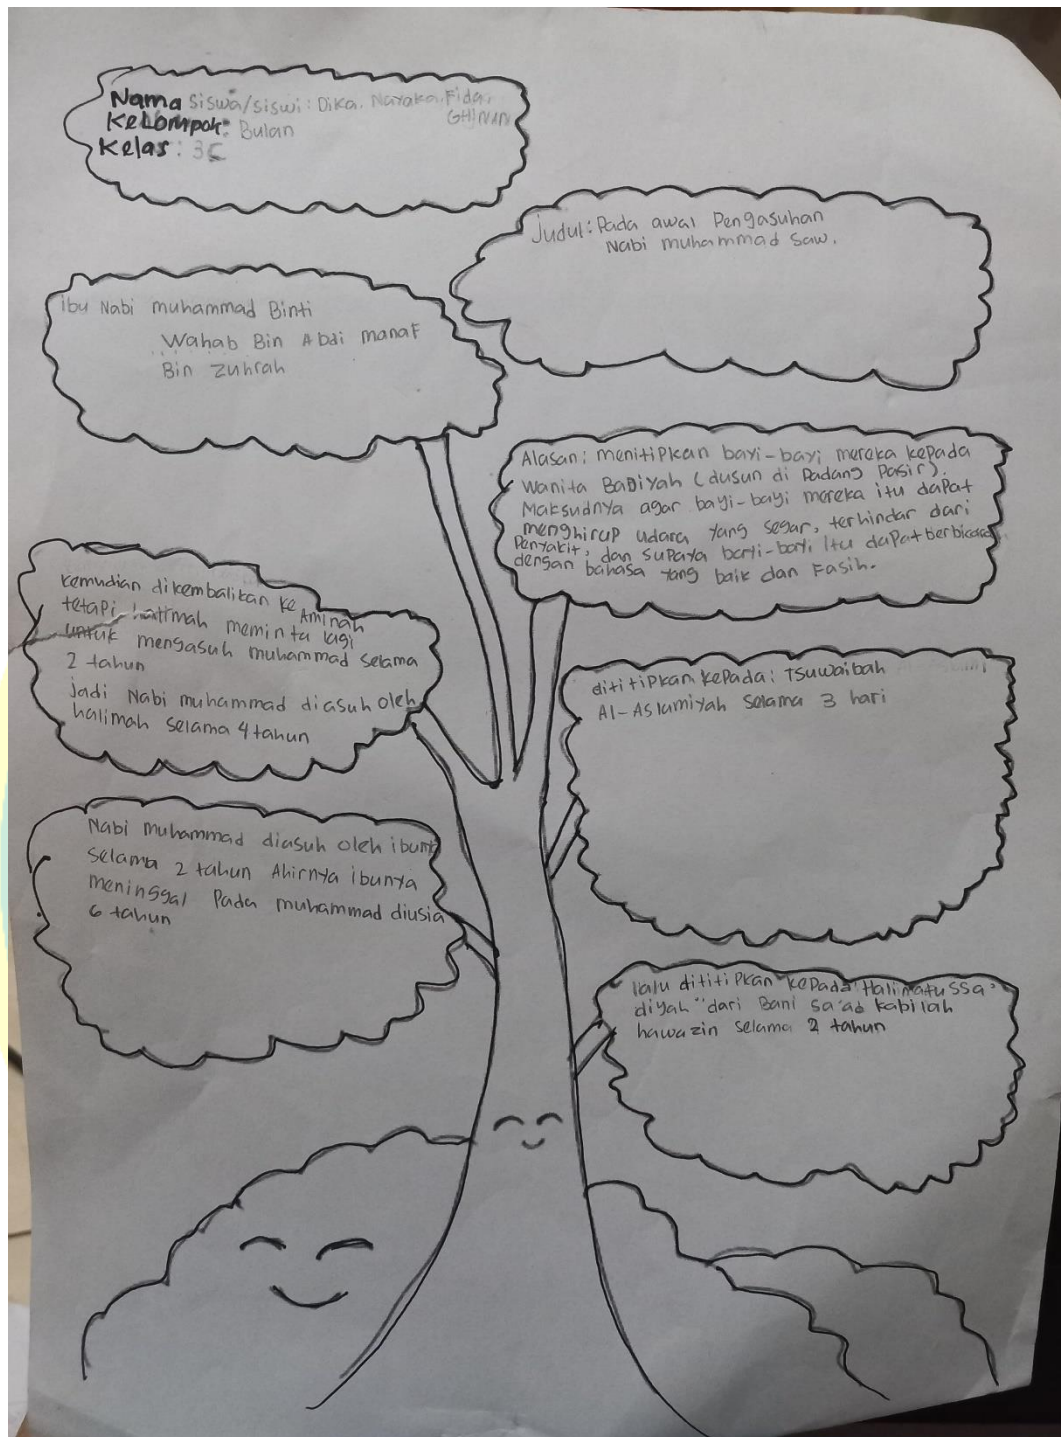 Nama Siswa/siswi: Dika. Nayaka. Fida.
GHINAN
KeLompok: Bulan
Kelas: 3C
Judul: Pada awal Pengasuhan
Nabi muhammad Saw.
ibu Nabi muhammad Binti
Wahab Bin Abdi manaF
Bin Zuhrah
Alasan: menitipkan bayi-bayi mereka kepada
Wanita BaDiyah (dusun di Padang Pasir).
Maksudnya agar bayi-bayi mereka itu dapat
menghirup udara yang segar, terhindar dari
Penyakit, dan supaya bayi-bayi Itu dapat berbicara
dengan bahasa yang baik dan Fasih.
kemudian dikembalikan ke Aminah
tetapi halimah meminta lagi
untuk mengasuh muhammad selama
2 tahun
jadi Nabi muhammad diasuh oleh
halimah selama 4 tahun
dititipkan kepada: Tsuwaibah
Al-Aslamiyah selama 3 hari
Nabi muhammad diasuh oleh ibunya
selama 2 tahun Ahirnya ibunya
meninggal Pada muhammad diusia
6 tahun
lalu dititipkan kepada "Halimatussa'
diyah" dari Bani Sa'ad kabilah
hawazin selama 2 tahun